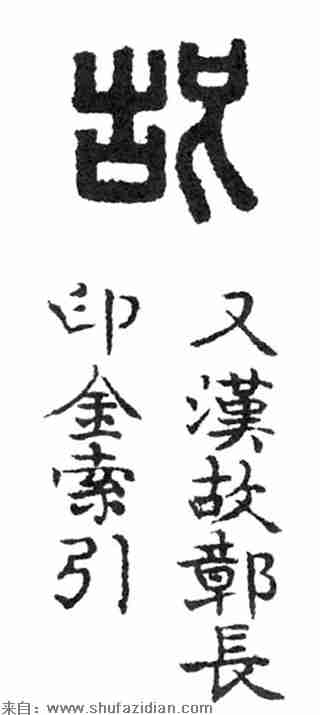 故
又漢故鄣長
印金索引
来自：www.shufazidian.com